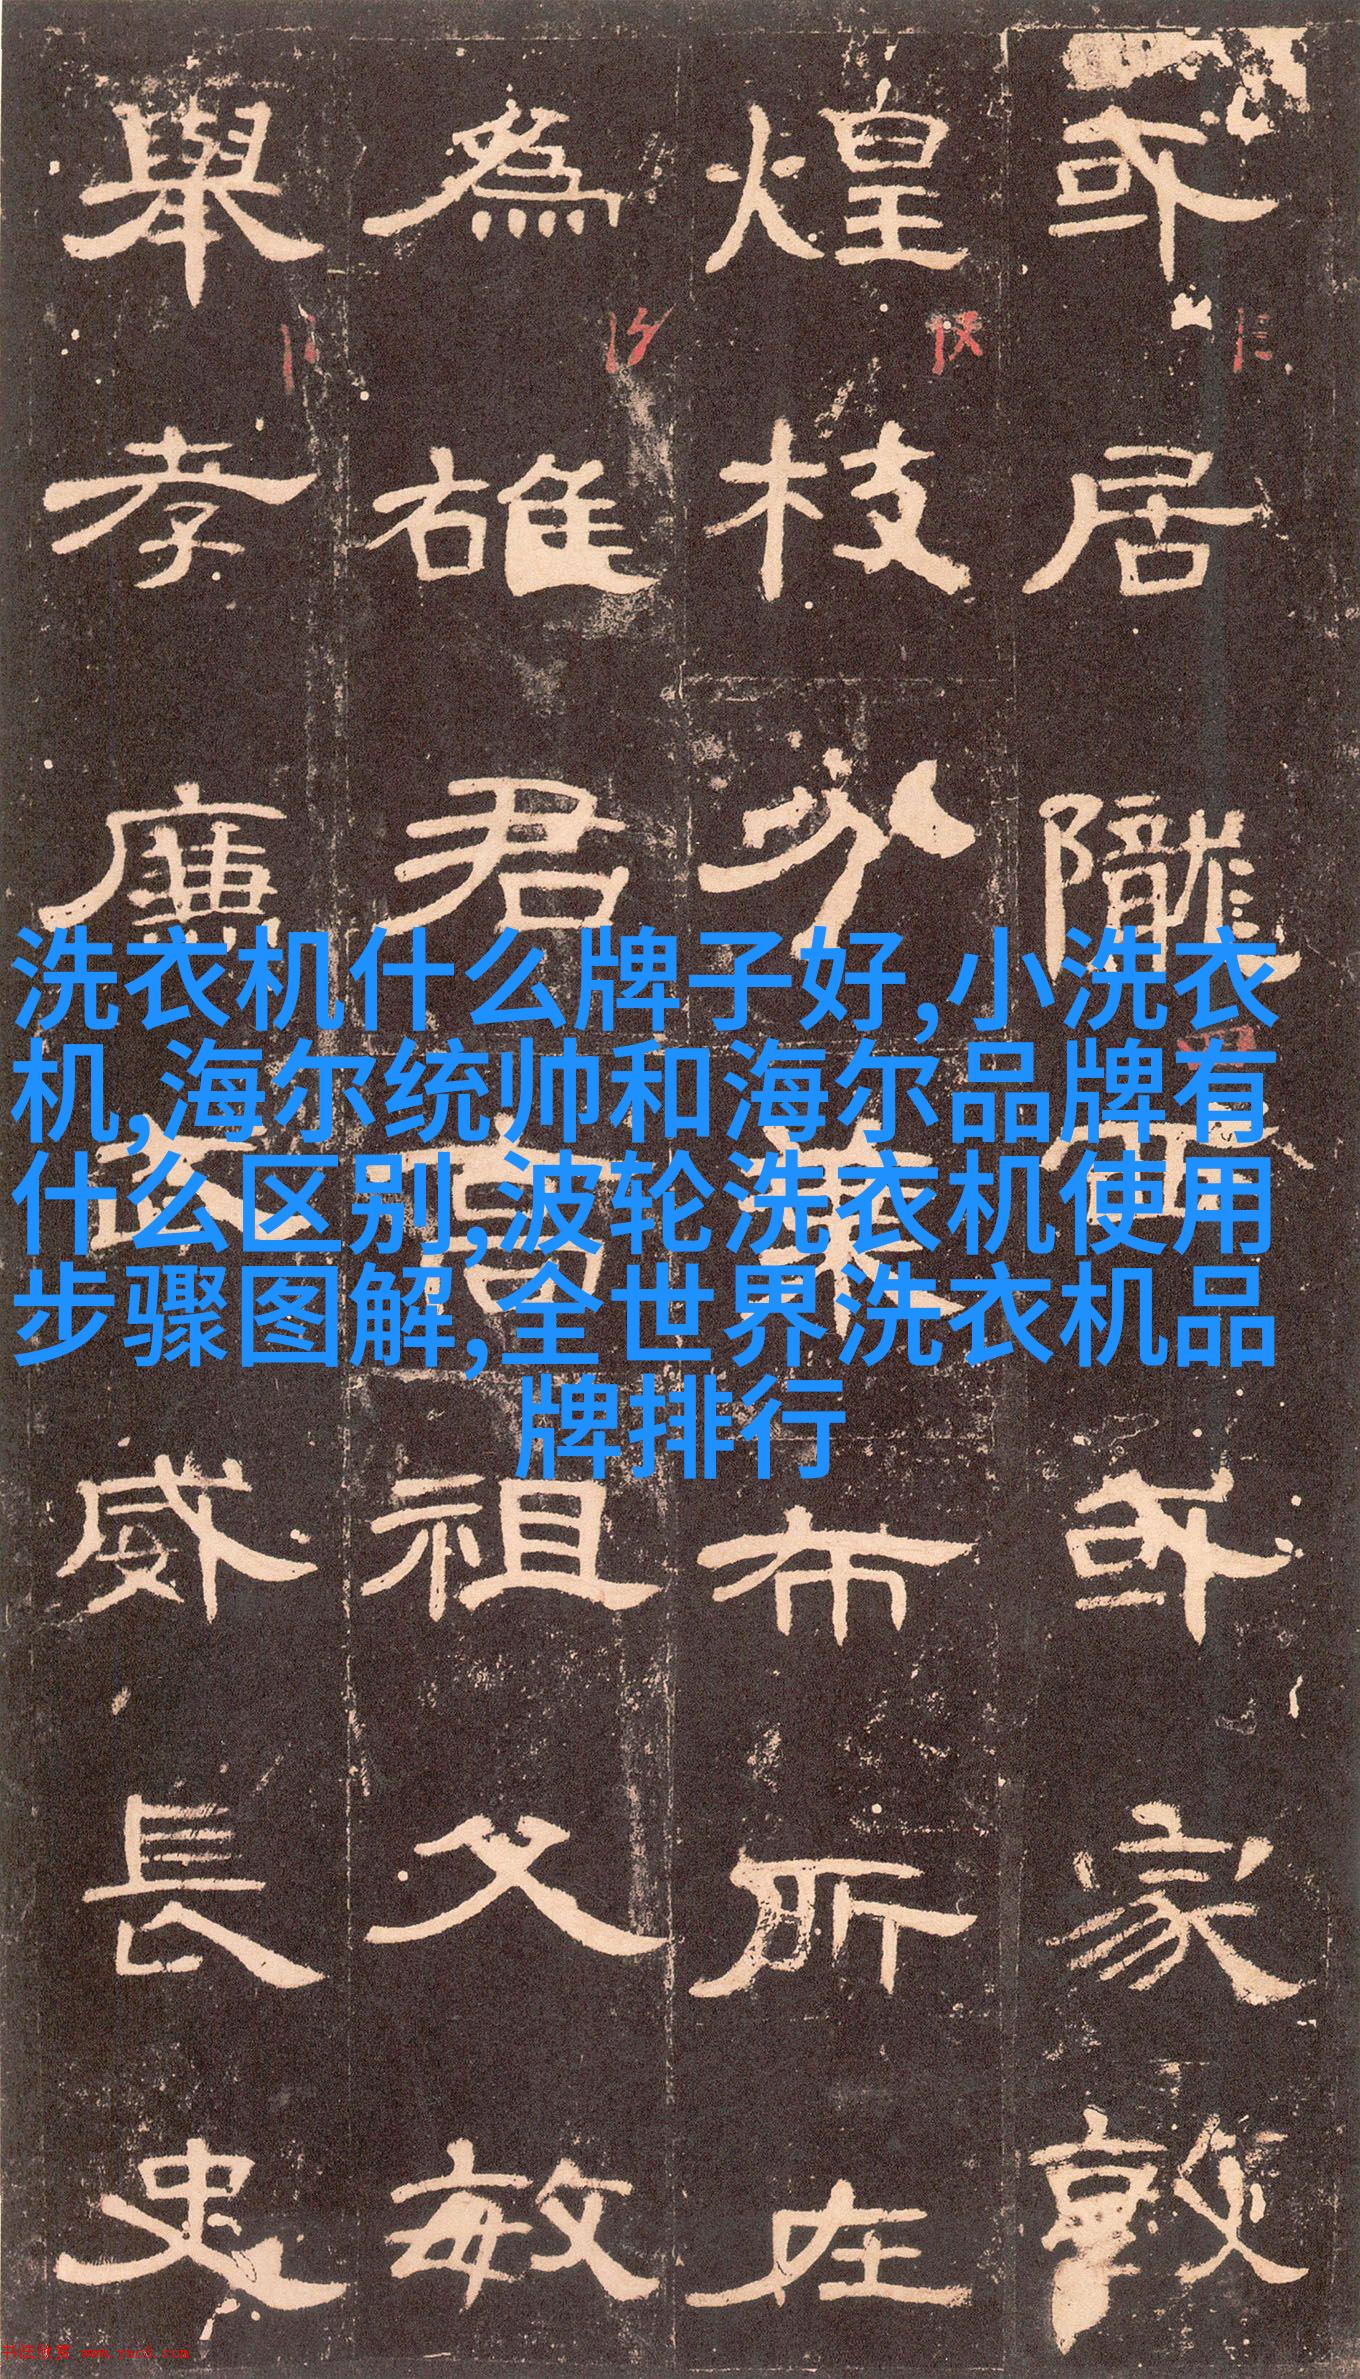 或居隴西或家敦
煌枝分葉布所在
為雄君高祖父敏
舉孝廉武威長史
洗衣机什么牌子好,小洗衣
机,海尔统帅和海尔品牌有
什么区别,波轮洗衣机使用
步骤图解,全世界洗衣机品
牌排行
书法欣赏 www.yac8.com